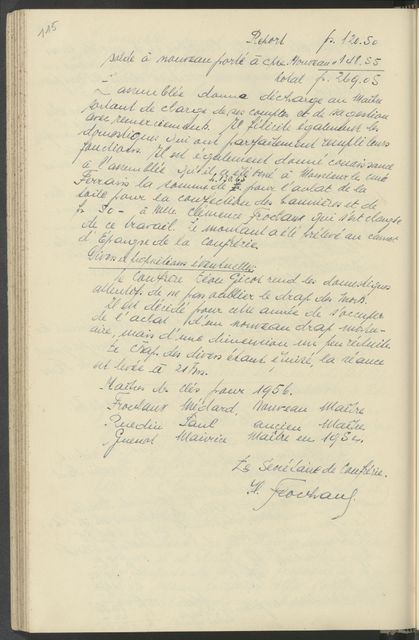 115
Report fr. 120.50
solde à nouveau porté à cpte. Nouveau " 148.55
total fr. 269.05
L'assemblée donne décharge au Maître
sortant de charge de ses comptes et de sa gestion
avec remerciements. Il félicite également les
domestiques qui ont parfaitement rempli leurs
fonctions. Il est également donné connaissance
à l'assemblée qu'il a été versé à Monsieur le curé
Ferraris la somme de fr. pour l'achat de la
soie pour la confection des bannières et de
fr 50- à Mlle Clémence Frochaux qui s'est chargée
de ce travail. Le montant a été prélevé au carnet
d'Epargne de la Confrérie.
Divers et propositions éventuelles:
Le Confrère Léon Gicot rend les domestiques
attentifs de ne pas oublier le drap des morts.
Il est décidé pour cette année de s'occuper
de l'achat d'un nouveau drap mortu-
aire, mais d'une dimension un peu réduite.
Le chap. des divers étant épuisé, la séance
est levée à 21 hrs.
Maîtres des clés pour 1956.
Frochaux Médard, Nouveau Maître
Ruedin Paul ancien Maître
Guenot Maurice Maître en 1954.
Le Secrétaire de Confrérie.
H. Frochaux